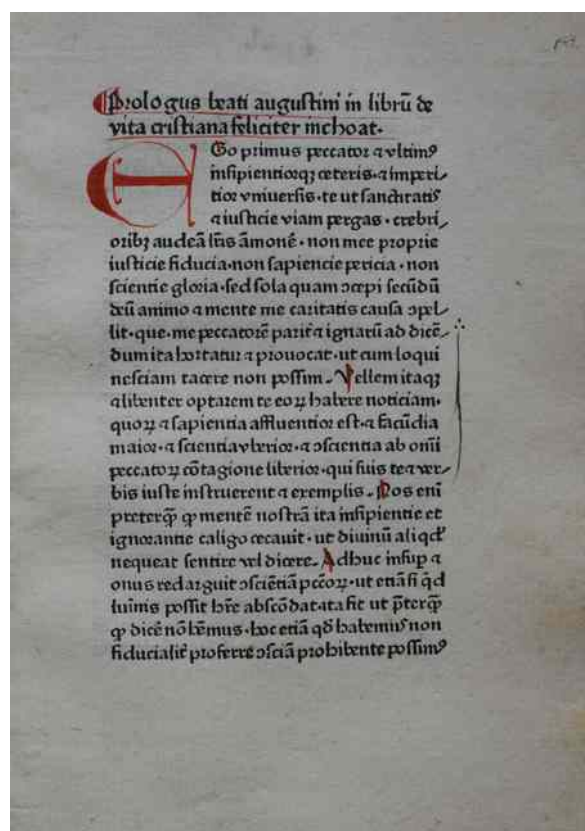 Prologus beati augustini in librū de
vita cristiana feliciter inchoat·
EGo primus peccator ⁊ vltimꝰ
insipientiorqꝫ ceteris· ⁊ imperi
tior vniuersis· te ut sanctitatis
⁊ iusticie viam pergas· crebri⸗
oribꝫ audeā lr̄is āmonē· non mee proprie
iusticie fiducia· non sapiencie pericia· non
scientie gloria· sed sola quam ꝯcepi secūdū
deū animo ⁊ mente me caritatis causa ꝯpel⸗
lit· que· me peccatorē parit̄ ⁊ ignarū ad dicē⸗
dum ita hortatur ⁊ prouocat· ut cum loqui
nesciam tacere non possim· Vellem itaqꝫ
⁊ libenter optarem te eoꝝ habere noticiam·
quoꝝ ⁊ sapientia affluentior est· ⁊ facūdia
maior· ⁊ scientia vberior· ⁊ ꝯscientia ab om̄i
peccatoꝝ cōtagione liberior· qui suis te ⁊ ver⸗
bis iuste instruerent ⁊ exemplis· Nos eni
preterꝙ̄ ꝙ mentē nostrā ita insipientie et
ignorantie caligo cecauit· ut diuinū aliqd̄
nequeat sentire vel dicere· Adhuc insup̄ ⁊
onus redarguit ꝯsciētiā pcc̄oꝝ· ut etiā si q̄d
luīnis possit hr̄e abscōdat· ita fit ut p̄terꝙ̄
ꝙ dicē nō hēmus· hoc etiā qd̄ habemus non
fiducialit̄ proferre ꝯsciā prohibente possimꝰ